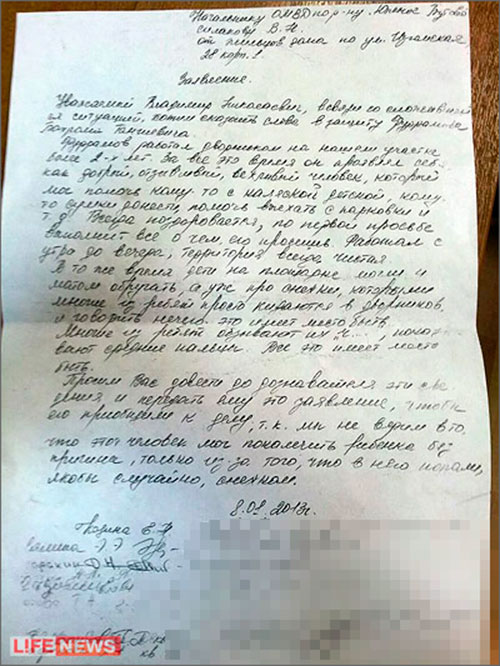 Начальнику ОМВД по р-ну Южное Бутово
от жильцов дома по ул. Изюмская,
28 корп. 1.
Заявление.
Уважаемый Владимир, в связи со сложившей
ся ситуацией, хотим сказать слова в защиту
работал дворником на нашем участке
более 2-х лет. За все это время он проявлял себя
как добрый, отзывчивый, вежливый человек, который
мог помочь кому-то с коляской детской, кому
то сумки донести, помочь выехать с парковки и
т.д. Всегда поздоровается, по первой просьбе
выполнит все о чем его просишь. Работал с
утра до вечера, территория всегда чистая
В то же время дети на площадке могли и
матом обругать, а уж про снежки, которыми
многие из ребят просто кидаются в дворников
и говорить нечего это имеет место быть.
Многие из ребят обзывают их "ч...", показ
вают средние пальцы. Все это имеет место
быть.
Просим Вас довести до дознавателя эти све
дения и передать ему это заявление, чтобы
его приобщили к делу, т.к. мы не верим в то,
что этот человек мог покалечить ребенка без
причины, только из-за того, что в него попали,
якобы случайно, снежком.
8.01.2013г.
LIFE NEWS